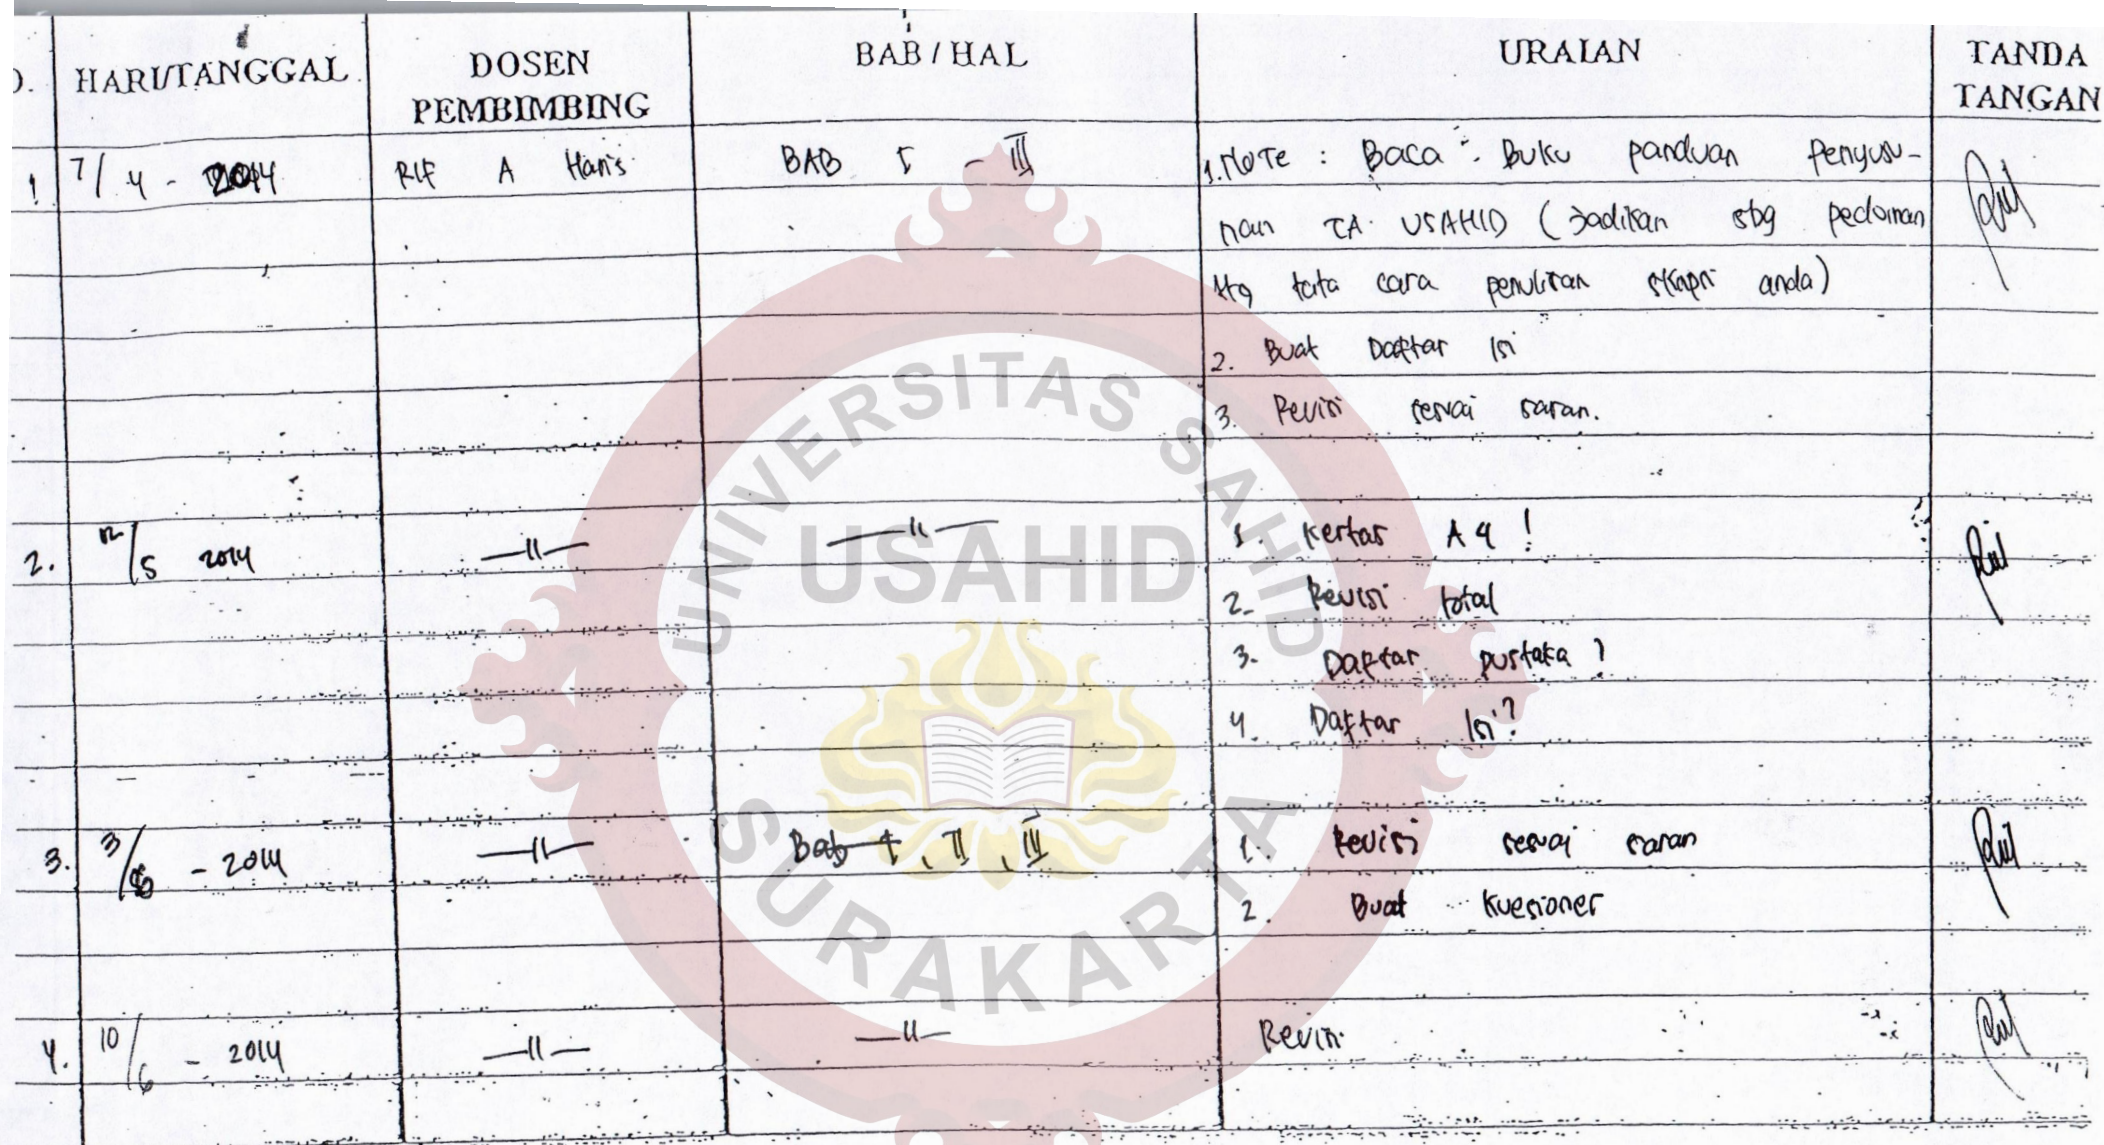 HARI/TANGGAL DOSEN PEMBIMBING BAB / HAL URAIAN TANDA TANGAN
1 7/4 - 2014 A Haris BAB I - III 1. Note : Baca Buku panduan penyusu-
nan TA USAHID (Jadikan sbg pedoman
ttg tata cara penulisan skripsi anda)
2. Buat Daftar Isi
3. Revisi sesuai saran.
2. 12/5 2014 —11— —11— 1. Kertas A4 !
2. Revisi total
3. Daftar pustaka ?
4. Daftar Isi ?
3. 3/6 - 2014 —11— Bab I, II, III 1. Revisi sesuai saran
2. Buat kuesioner
4. 10/6 - 2014 —11— —11— Revisi
UNIVERSITAS SAHID
USAHID
SURAKARTA